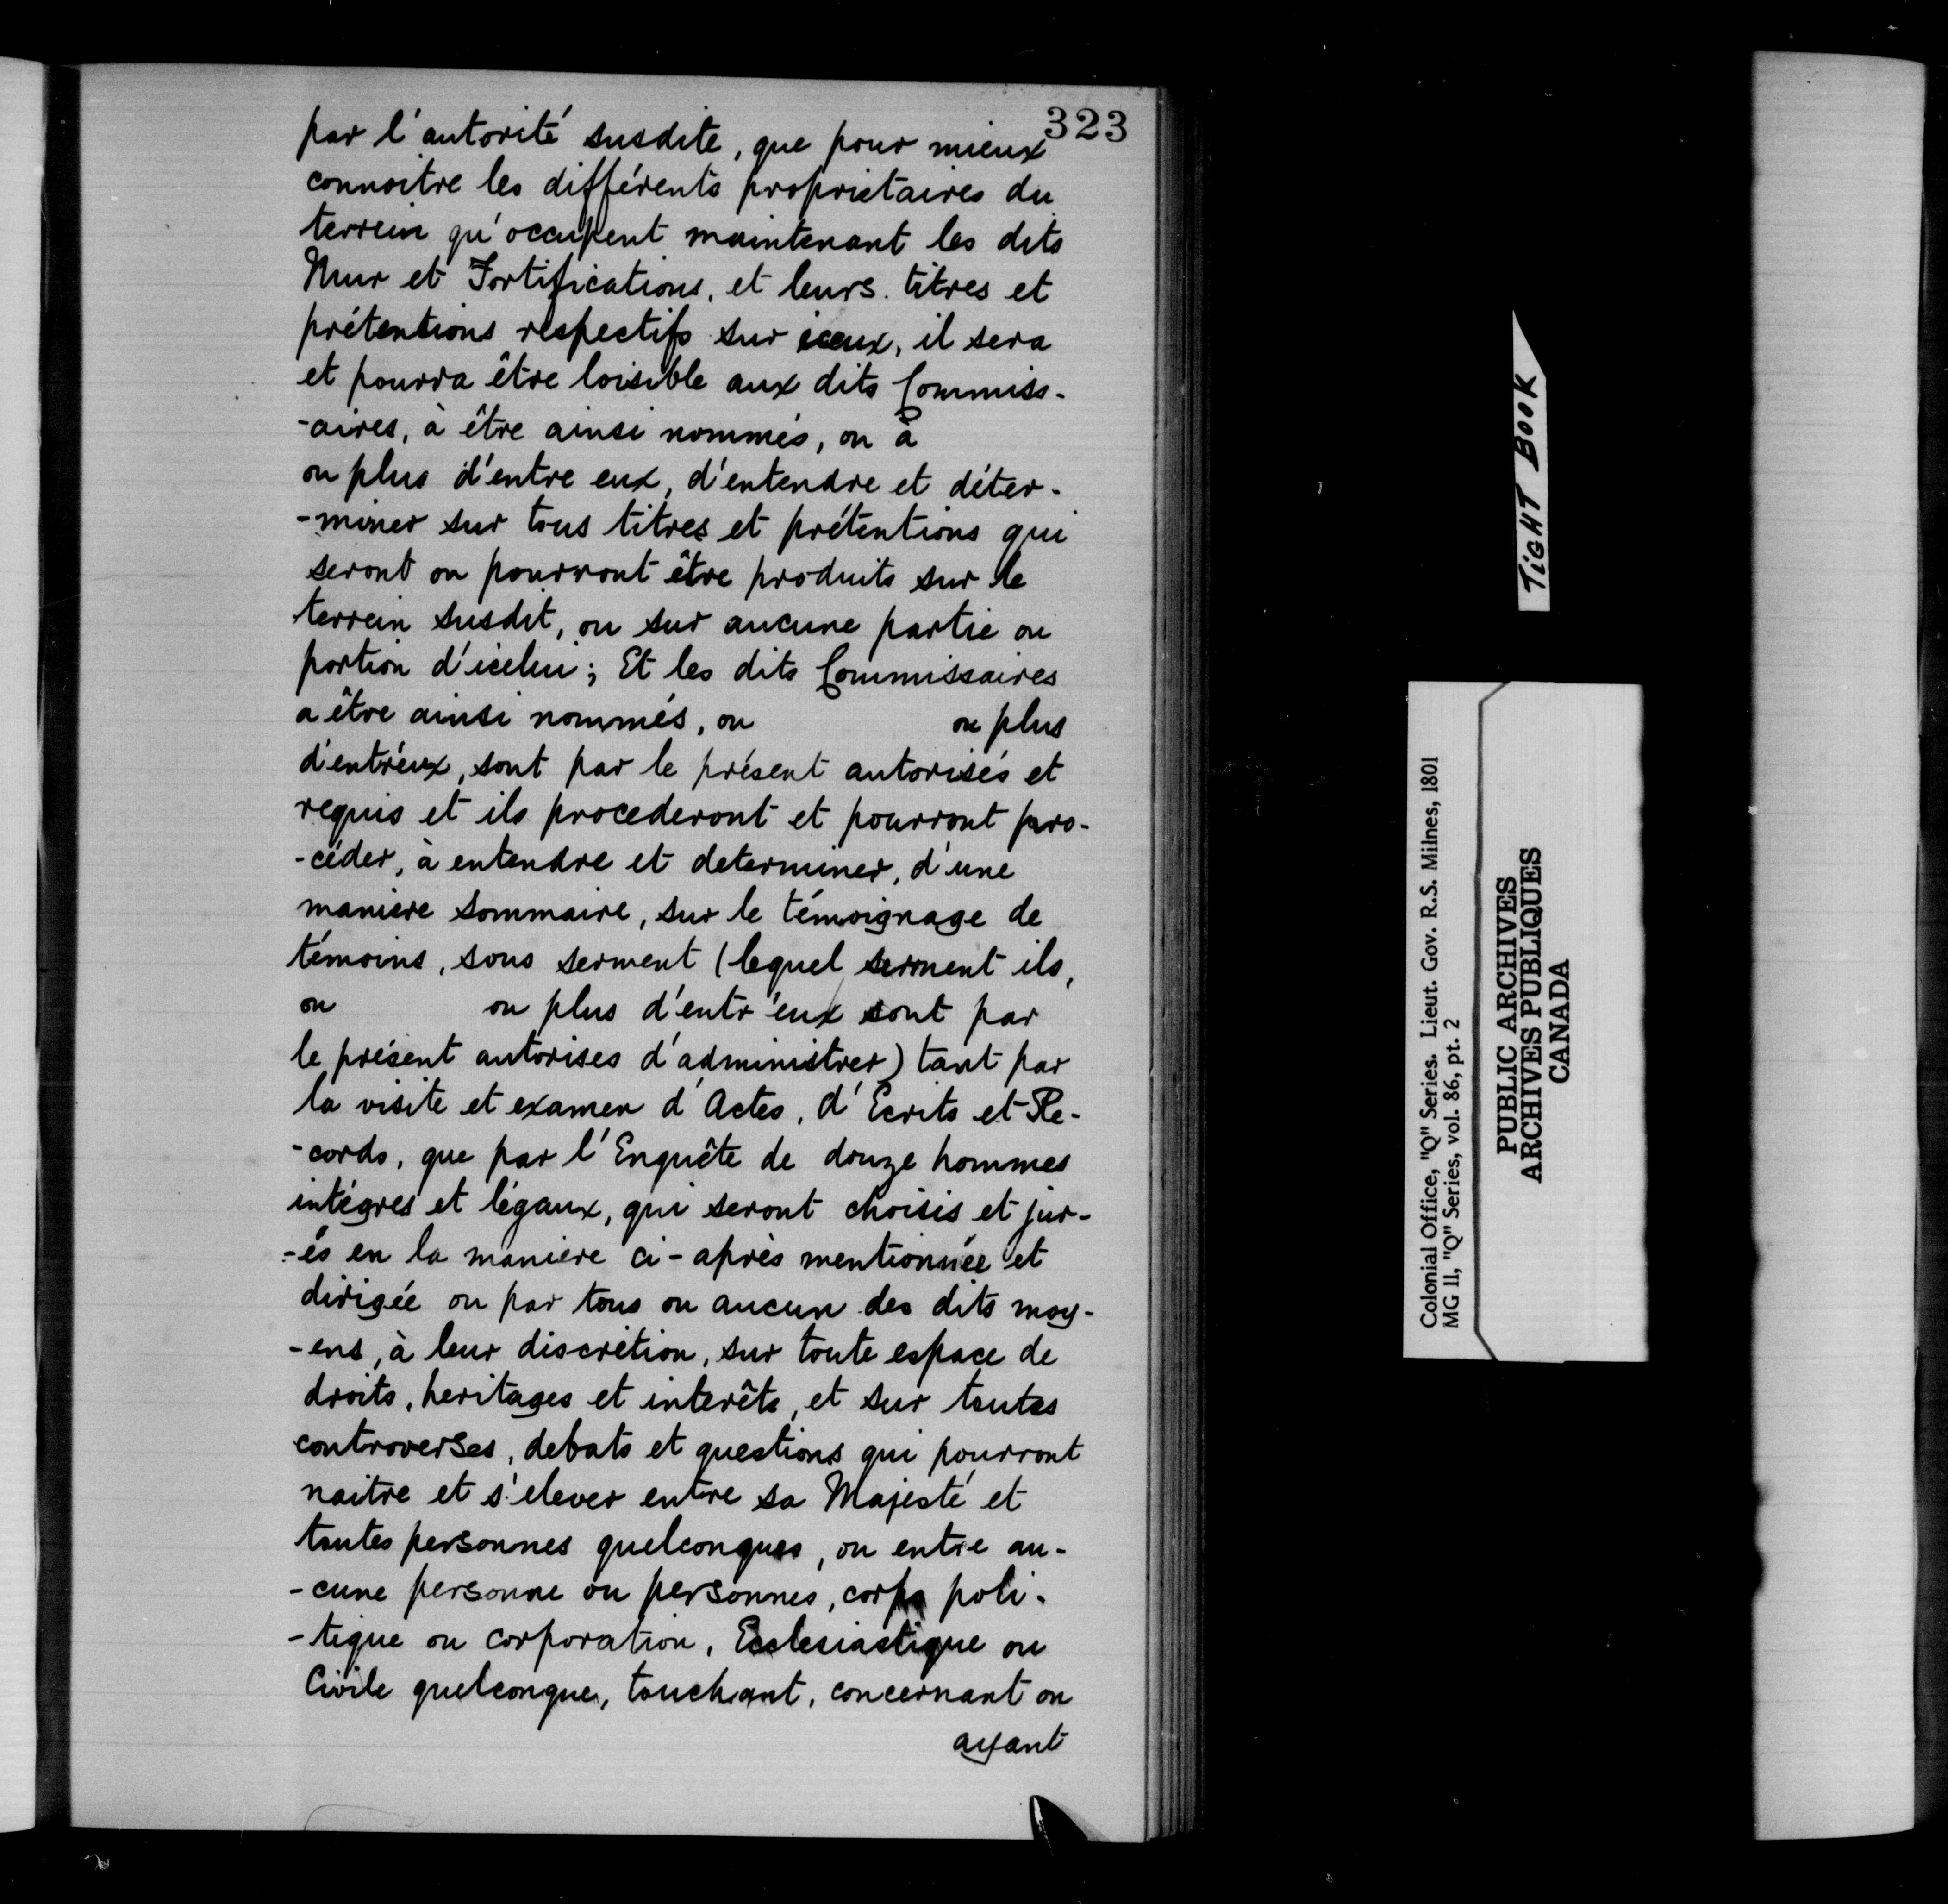 323
par l'autorité susdite, que pour mieux
connoitre les différents proprietaires du
terrein qu'occupent maintenant les dits
Mur et Fortifications, et leurs titres et
prétentions respectifs sur iceux, il sera
et pourra être loisible aux dits Commiss-
-aires, à être ainsi nommés, ou à
ou plus d'entre eux, d'entendre et déter-
-miner sur tous titres et prétentions qui
seront ou pourront être produits sur le
terrein susdit, ou sur aucune partie ou
portion d'icelui; Et les dits Commissaires
a être ainsi nommés, ou ou plus
d'entr'eux, sont par le présent autorisés et
requis et ils procederont et pourront pro-
-céder, à entendre et determiner, d'une
maniere sommaire, sur le témoignage de
témoins, sous serment (lequel serment ils,
ou ou plus d'entr'eux sont par
le présent autorises d'administrer) tant par
la visite et examen d'Actes, d'Ecrits et Re-
-cords, que par l'Enquête de douze hommes
intégres et légaux, qui seront choisis et jur-
-és en la maniere ci-après mentionnée et
dirigée ou par tous ou aucun des dits moy-
-ens, à leur discretion, sur toute espace de
droits, heritages et interêts, et sur toutes
controverses, debats et questions qui pourront
naitre et s'elever entre sa Majesté et
toutes personnes quelconques, ou entre au-
-cune personne ou personnes, corps poli-
-tique ou corporation, Ecclesiastique ou
Civile quelconque, touchant, concernant ou
ayant
TIGHT BOOK
Colonial Office, "Q" Series. Lieut. Gov. R.S. Milnes, 1801
MG 11, "Q" Series, vol. 86, pt. 2
PUBLIC ARCHIVES
ARCHIVES PUBLIQUES
CANADA